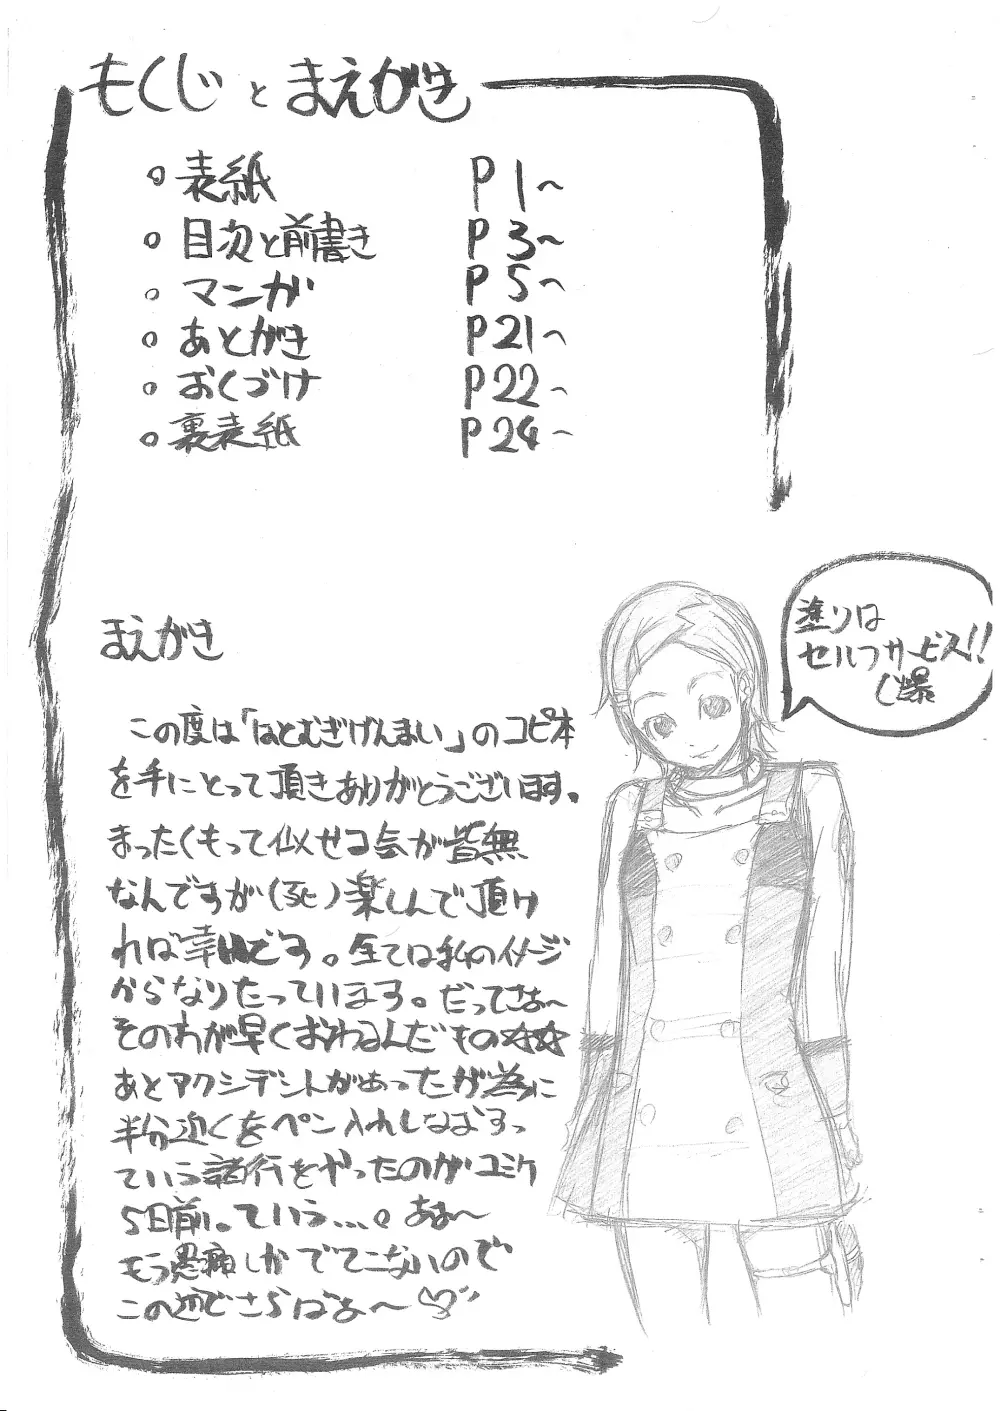 もくじとまえがき
表紙 P1~
目次と前書き P3~
マンガ P5~
あとがき P21~
おくづけ P22~
裏表紙 P24~
塗りは
セルフサービス!!
(爆
まえがき
この度は「はとむぎげんまい」のコピ本
を手にとって頂きありがとうございます。
まったくもって似せ具合が皆無
なんですが(死)楽しんで頂け
れば幸いです。全ては私のイメージ
からなりたっています。だってさぁ~
そのわが早くおわるんだもの☆☆☆
あとアクシデントがあったが為に
半分近くをペン入れしなおすっ
ていう諸行をやったのがコミケ
5日前。ていう…。ああ~
もう愚痴しかでてこないので
この辺でさらばよ~